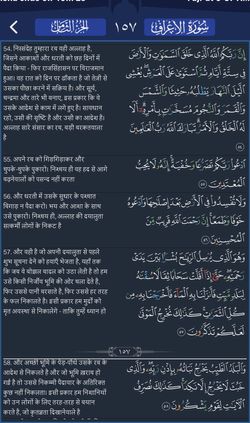 الجزء الثامن
١٥٧
سورة الأعراف
54. निस्संदेह तुम्हारा रब वही अल्लाह है,
जिसने आकाशों और धरती को छह दिनों में
पैदा किया - फिर राजसिंहासन पर विराजमान
हुआ। वह रात को दिन पर ढाँकता है जो तेज़ी से
उसका पीछा करने में सक्रिय है। और सूर्य,
चन्द्रमा और तारे भी बनाए, इस प्रकार कि वे
उसके आदेश से काम में लगे हुए है। सावधान
रहो, उसी की सृष्टि है और उसी का आदेश है।
अल्लाह सारे संसार का रब, बड़ी बरकतवाला
है
إِنَّ رَبَّكُمُ ٱللَّهُ ٱلَّذِى خَلَقَ ٱلسَّمَٰوَٰتِ وَٱلْأَرْضَ
فِى سِتَّةِ أَيَّامٍ ثُمَّ ٱسْتَوَىٰ عَلَى ٱلْعَرْشِ يُغْشِى
ٱلَّيْلَ ٱلنَّهَارَ يَطْلُبُهُۥ حَثِيثًا وَٱلشَّمْسَ
وَٱلْقَمَرَ وَٱلنُّجُومَ مُسَخَّرَٰتٍۭ بِأَمْرِهِۦٓ أَلَا
لَهُ ٱلْخَلْقُ وَٱلْأَمْرُ تَبَارَكَ ٱللَّهُ رَبُّ ٱلْعَٰلَمِينَ
٥٤
55. अपने रब को गिड़गिड़ाकर और
चुपके-चुपके पुकारो। निश्चय ही वह हद से आगे
बढ़नेवालों को पसन्द नहीं करता
ٱدْعُوا۟ رَبَّكُمْ تَضَرُّعًا وَخُفْيَةً إِنَّهُۥ لَا يُحِبُّ
ٱلْمُعْتَدِينَ ٥٥
56. और धरती में उसके सुधार के पश्चात
बिगाड़ न पैदा करो। भय और आशा के साथ
उसे पुकारो। निश्चय ही, अल्लाह की दयालुता
सत्कर्मी लोगों के निकट है
وَلَا تُفْسِدُوا۟ فِى ٱلْأَرْضِ بَعْدَ إِصْلَٰحِهَا وَٱدْعُوهُ
خَوْفًا وَطَمَعًا إِنَّ رَحْمَتَ ٱللَّهِ قَرِيبٌ مِّنَ
ٱلْمُحْسِنِينَ ٥٦
57. और वही है जो अपनी दयालुता से पहले
शुभ सूचना देने को हवाएँ भेजता है, यहाँ तक
कि जब वे बोझल बादल को उठा लेती है तो हम
उसे किसी निर्जीव भूमि की ओर चला देते है,
फिर उससे पानी बरसाते है, फिर उससे हर तरह
के फल निकालते है। इसी प्रकार हम मुर्दों को
मृत अवस्था से निकालेंगे - ताकि तुम्हें ध्यान हो
وَهُوَ ٱلَّذِى يُرْسِلُ ٱلرِّيَٰحَ بُشْرًۢا بَيْنَ يَدَىْ
رَحْمَتِهِۦ حَتَّىٰٓ إِذَآ أَقَلَّتْ سَحَابًا ثِقَالًا سُقْنَٰهُ
لِبَلَدٍ مَّيِّتٍ فَأَنزَلْنَا بِهِ ٱلْمَآءَ فَأَخْرَجْنَا بِهِۦ مِن
كُلِّ ٱلثَّمَرَٰتِ كَذَٰلِكَ نُخْرِجُ ٱلْمَوْتَىٰ
لَعَلَّكُمْ تَذَكَّرُونَ ٥٧
١٥٧
58. और अच्छी भूमि के पेड़-पौधे उसके रब के
आदेश से निकलते है और जो भूमि ख़राब हो
गई है तो उससे निकम्मी पैदावार के अतिरिक्त
कुछ नहीं निकलता। इसी प्रकार हम निशानियों
को उन लोगों के लिए तरह-तरह से बयान
करते है, जो कृतज्ञता दिखानेवाले है
وَٱلْبَلَدُ ٱلطَّيِّبُ يَخْرُجُ نَبَاتُهُۥ بِإِذْنِ رَبِّهِۦ وَٱلَّذِى
خَبُثَ لَا يَخْرُجُ إِلَّا نَكِدًا كَذَٰلِكَ نُصَرِّفُ
ٱلْءَايَٰتِ لِقَوْمٍ يَشْكُرُونَ ٥٨